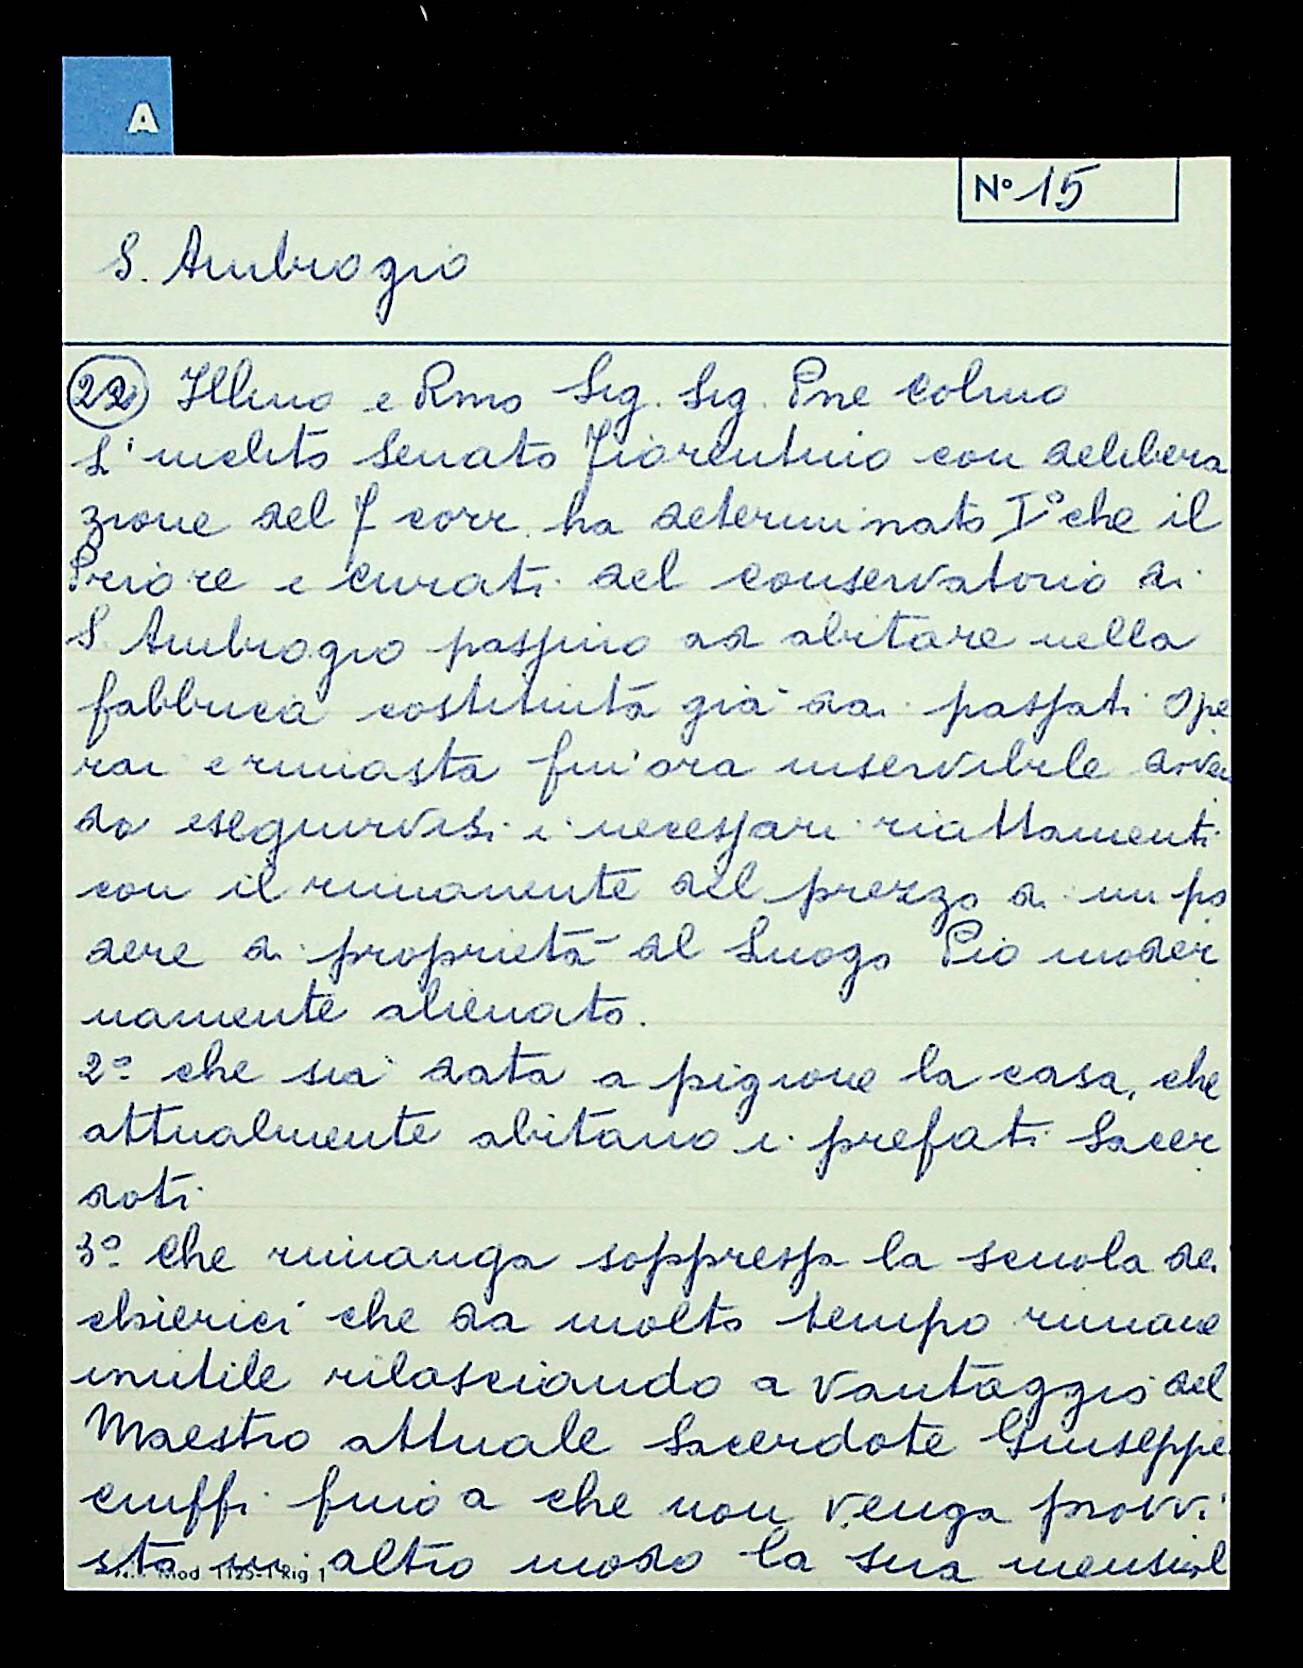 A
N° 15
S. Ambrogio
22 Illmo e Rmo Sig. Sig. Pne Colmo
L'inclito Senato Fiorentino con delibera
zione del 7 corr. ha determinato I° che il
Priore e Curati del conservatorio di
S. Ambrogio passino ad abitare nella
fabbrica costituita già dai passati Ope
rai e rimasta fin'ora inservibile
do eseguirvisi i necessari riattamenti
con il rimanente del prezzo di un po
dere di proprietà del Luogo Pio moder
namente alienato.
2° che sia data a pigione la casa, che
attualmente abitano i prefati Sacer
doti
3° Che rimanga soppressa la scuola dei
chierici che da molto tempo rimane
inutile rilasciando a vantaggio del
Maestro attuale Sacerdote Giuseppe
Ciuffi fino a che non venga provvi
sta in altro modo la sua mensil
Mod 1125-1 Rig 1